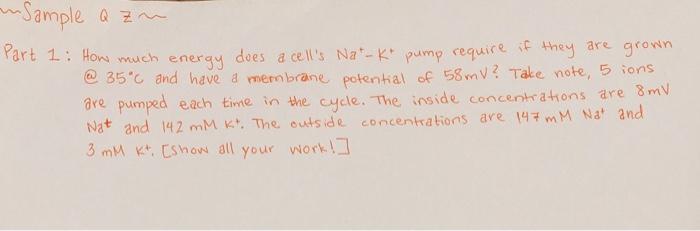 ~Sample Q Z~
Part 1: How much energy does a cell's Na⁺-K⁺ pump require if they are grown
@ 35°C and have a membrane potential of 58mV? Take note, 5 ions
are pumped each time in the cycle. The inside concentrations are 8mV
Na⁺ and 142 mM K⁺. The outside concentrations are 147 mM Na⁺ and
3 mM K⁺. [Show all your work!]